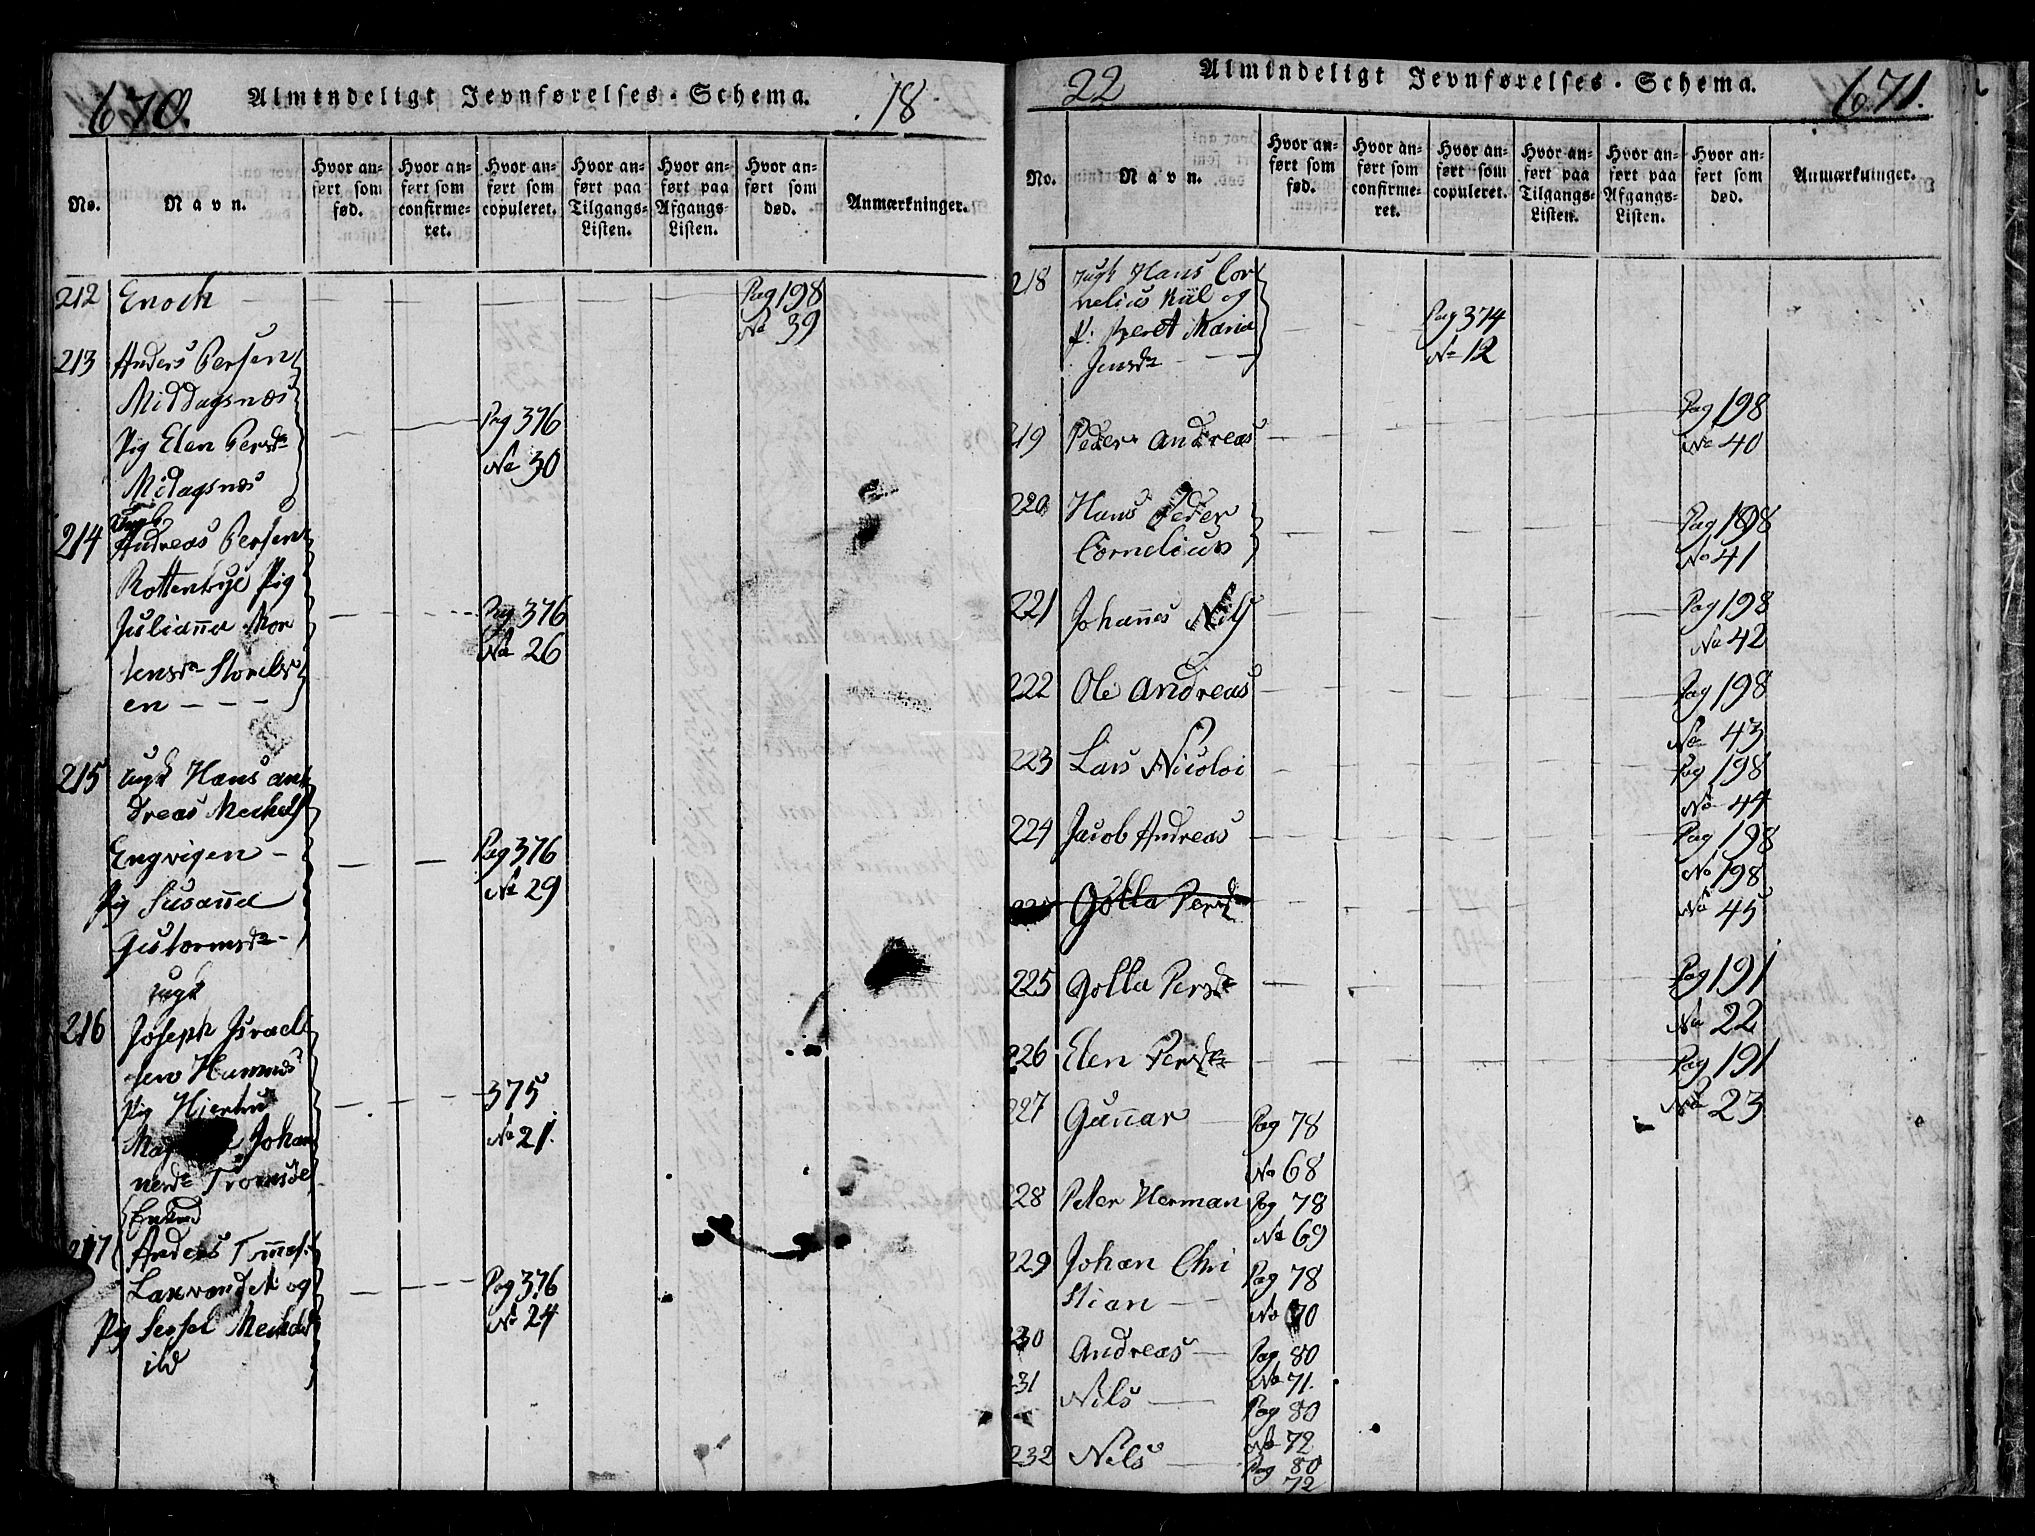 670. Almindeligt Jevnførelses-Schema. 18
No.
Navn.
Hvor anført som fød.
Hvor anført som confirmeret.
Hvor anført som copuleret.
Hvor anført paa Tilgangs-Listen.
Hvor anført paa Afgangs-Listen.
Hvor anført som død.
Anmærkninger.
212 Enoch Pag 198
No 39
213 Anders Persen
Middagsnæs
Pig Elen Persdr Pag 376
Midagsnæs No 30
Ungk
214 Andreas Persen
Rottenvye Pig
Julianna Mor Pag 376
tensdr Storels No 26
en
215 ungk Hans an
dreas Meikels
Engvigen Pag 376
Pig Susanna No 29
Guttormsdr
ungk
216 Joseph Israel
sen Hamnes
Pig Hjertru 375
Mag Johan No 21.
nesdr Tromsøe
Enkmd
217 Anders Tomes.
Laxvandet og Pag 376
Pig Sessel Meikels No 24
ild
22 Almindeligt Jevnførelses-Schema. 671.
No.
Navn.
Hvor anført som fød.
Hvor anført som confirmeret.
Hvor anført som copuleret.
Hvor anført paa Tilgangs-Listen.
Hvor anført paa Afgangs-Listen.
Hvor anført som død.
Anmærkninger.
218 ungk Hans Cor
nelius Kiil og Pag 374
P. Beret Maria No 12
Jensdr
219 Peder Andreas Pag 198
No 40
220 Hans Peder Pag 198
Cornelius No 41
221 Johannes Nils Pag 198
No 42
222 Ole Andreas Pag 198
No 43
223 Lars Nicolai Pag 198
No 44
224 Jacob Andreas Pag 198
No 198
225 Golla Persdr No 45
225 Golla Persdr Pag 191
No 22
226 Elen Persdr Pag 191
No 23
227 Gunnar Pag 78
No 68
228 Peter Herman Pag 78
No 69
229 Johan Chri Pag 78
stian No 70
230 Andreas Pag 80
No 71.
231 Nils Pag 80
No 72
232 Nils Pag 80
72